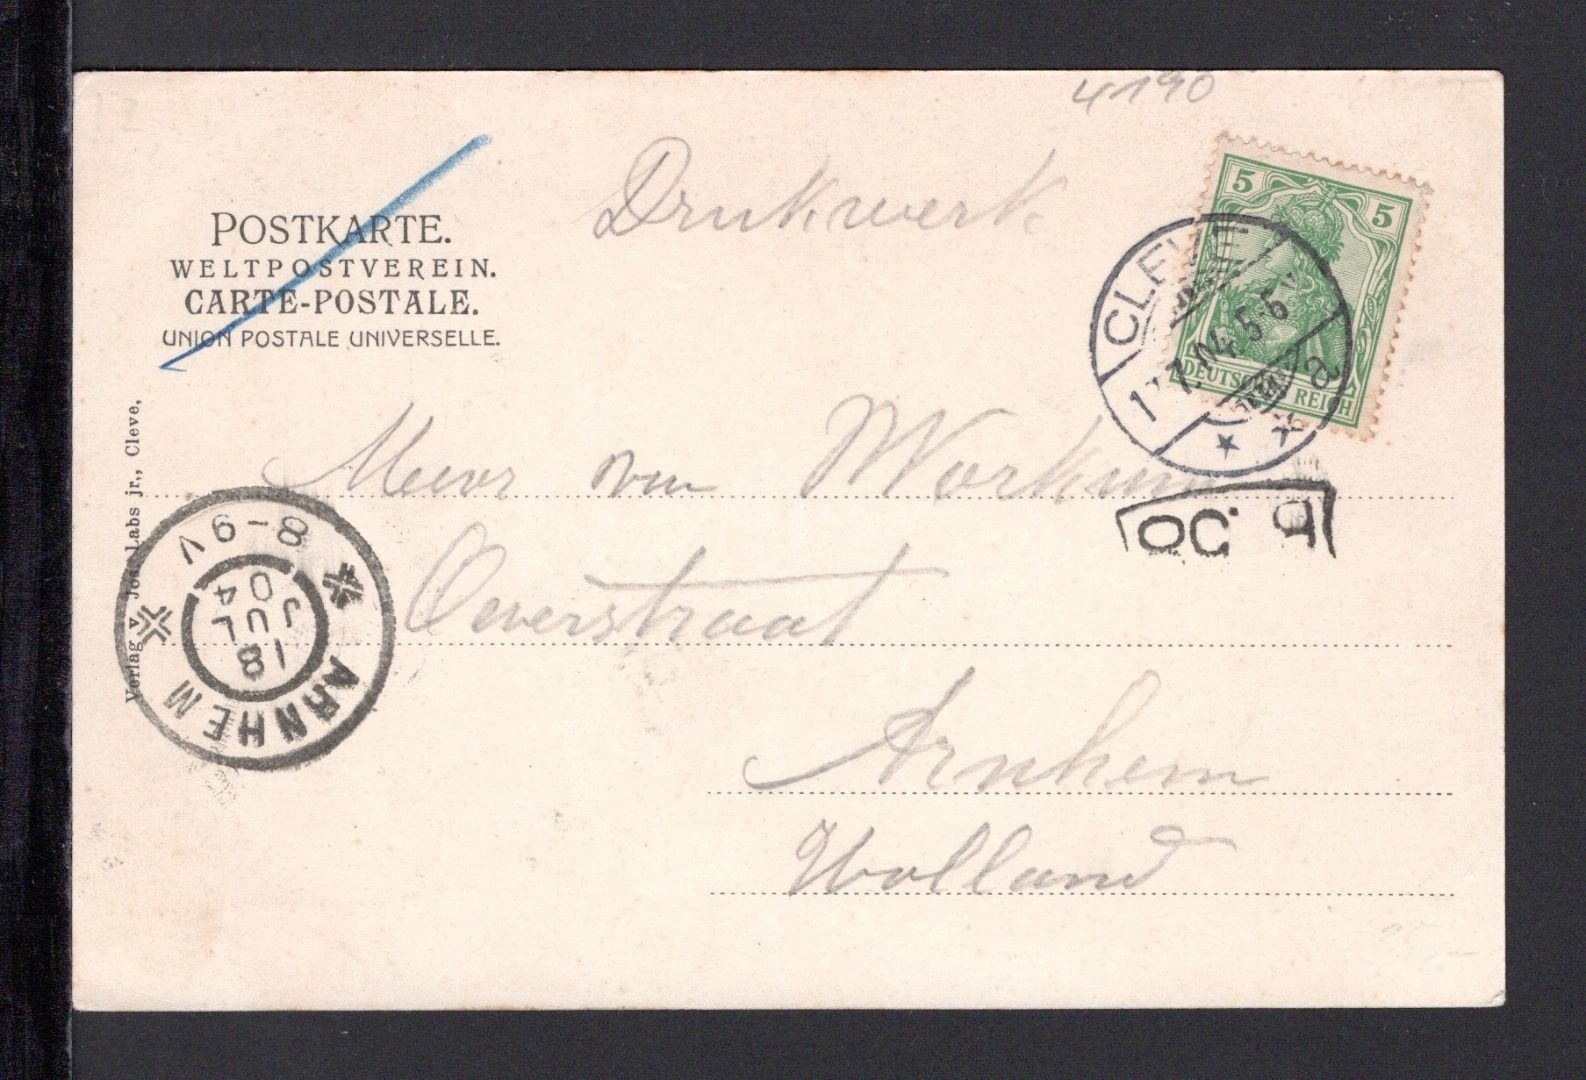 4190
Drukwerk
POSTKARTE.
WELTPOSTVEREIN.
CARTE-POSTALE.
UNION POSTALE UNIVERSELLE.
5 5
DEUTSCHES REICH
CLEVE
17.7.04. 5-6 N
* a *
Verlag v. Joh. Labs jr., Cleve,
Mevr van Workum
Oeverstraat
Arnhem
Holland
ARNHEM
18
JUL
04
8-9V